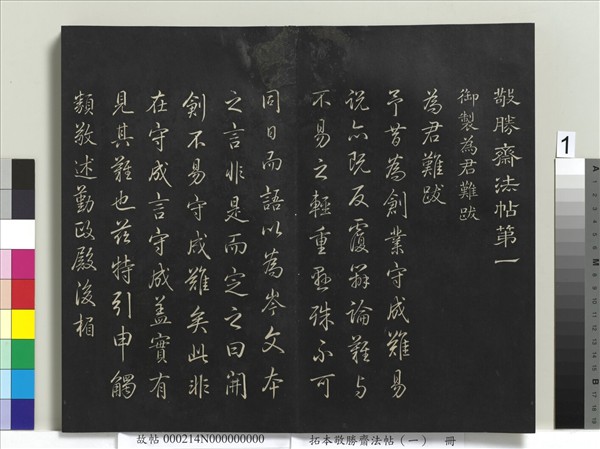 敬勝齋法帖第一
御製為君難跋
為君難跋
予昔為創業守成難易
說亦既反覆辨論難与
不易之輕重懸殊不可
同日而語以為岑文本
之言非是而定之曰開
創不易守成難矣此非
在守成言守成蓋實有
見其難也茲特引申觸
類敬述勤政殿後楣
1
A
M
B
故帖 000214N000000000 拓本敬勝齋法帖（一） 冊